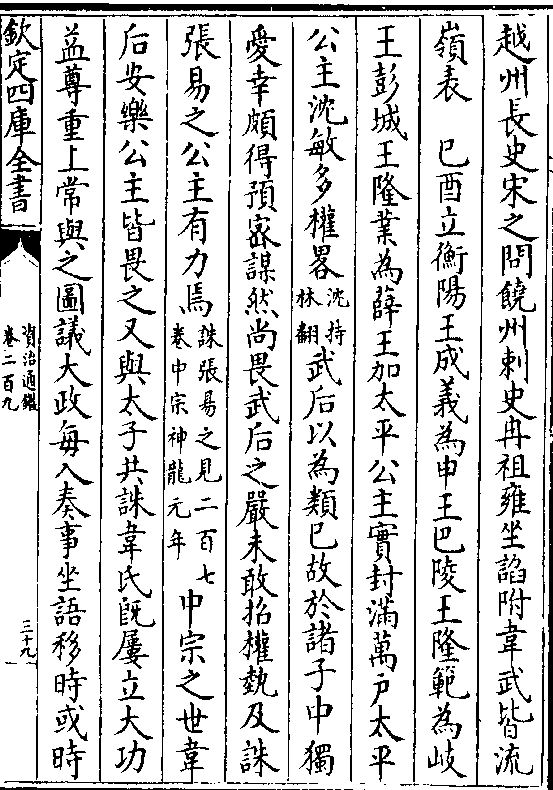 越州長史宋之問饒州刺史冉祖雍坐諂附韋武皆流
嶺表　已酉立衡陽王成義為申王巴陵王隆範為岐
王彭城王隆業為薛王加太平公主實封滿萬戶太平
公主沈敏多權畧沈持林翻武后以為類已故於諸子中獨
愛幸頗得預宻謀然尚畏武后之嚴未敢招權埶及誅
張易之公主有力焉誅張易之見二百七卷中宗神龍元年中宗之世韋
后安樂公主皆畏之又與太子共誅韋氏旣屢立大功
益尊重上常與之圖議大政每入奏事坐語移時或時
欽定四庫全書
資治通鑑
卷二百九
三十九